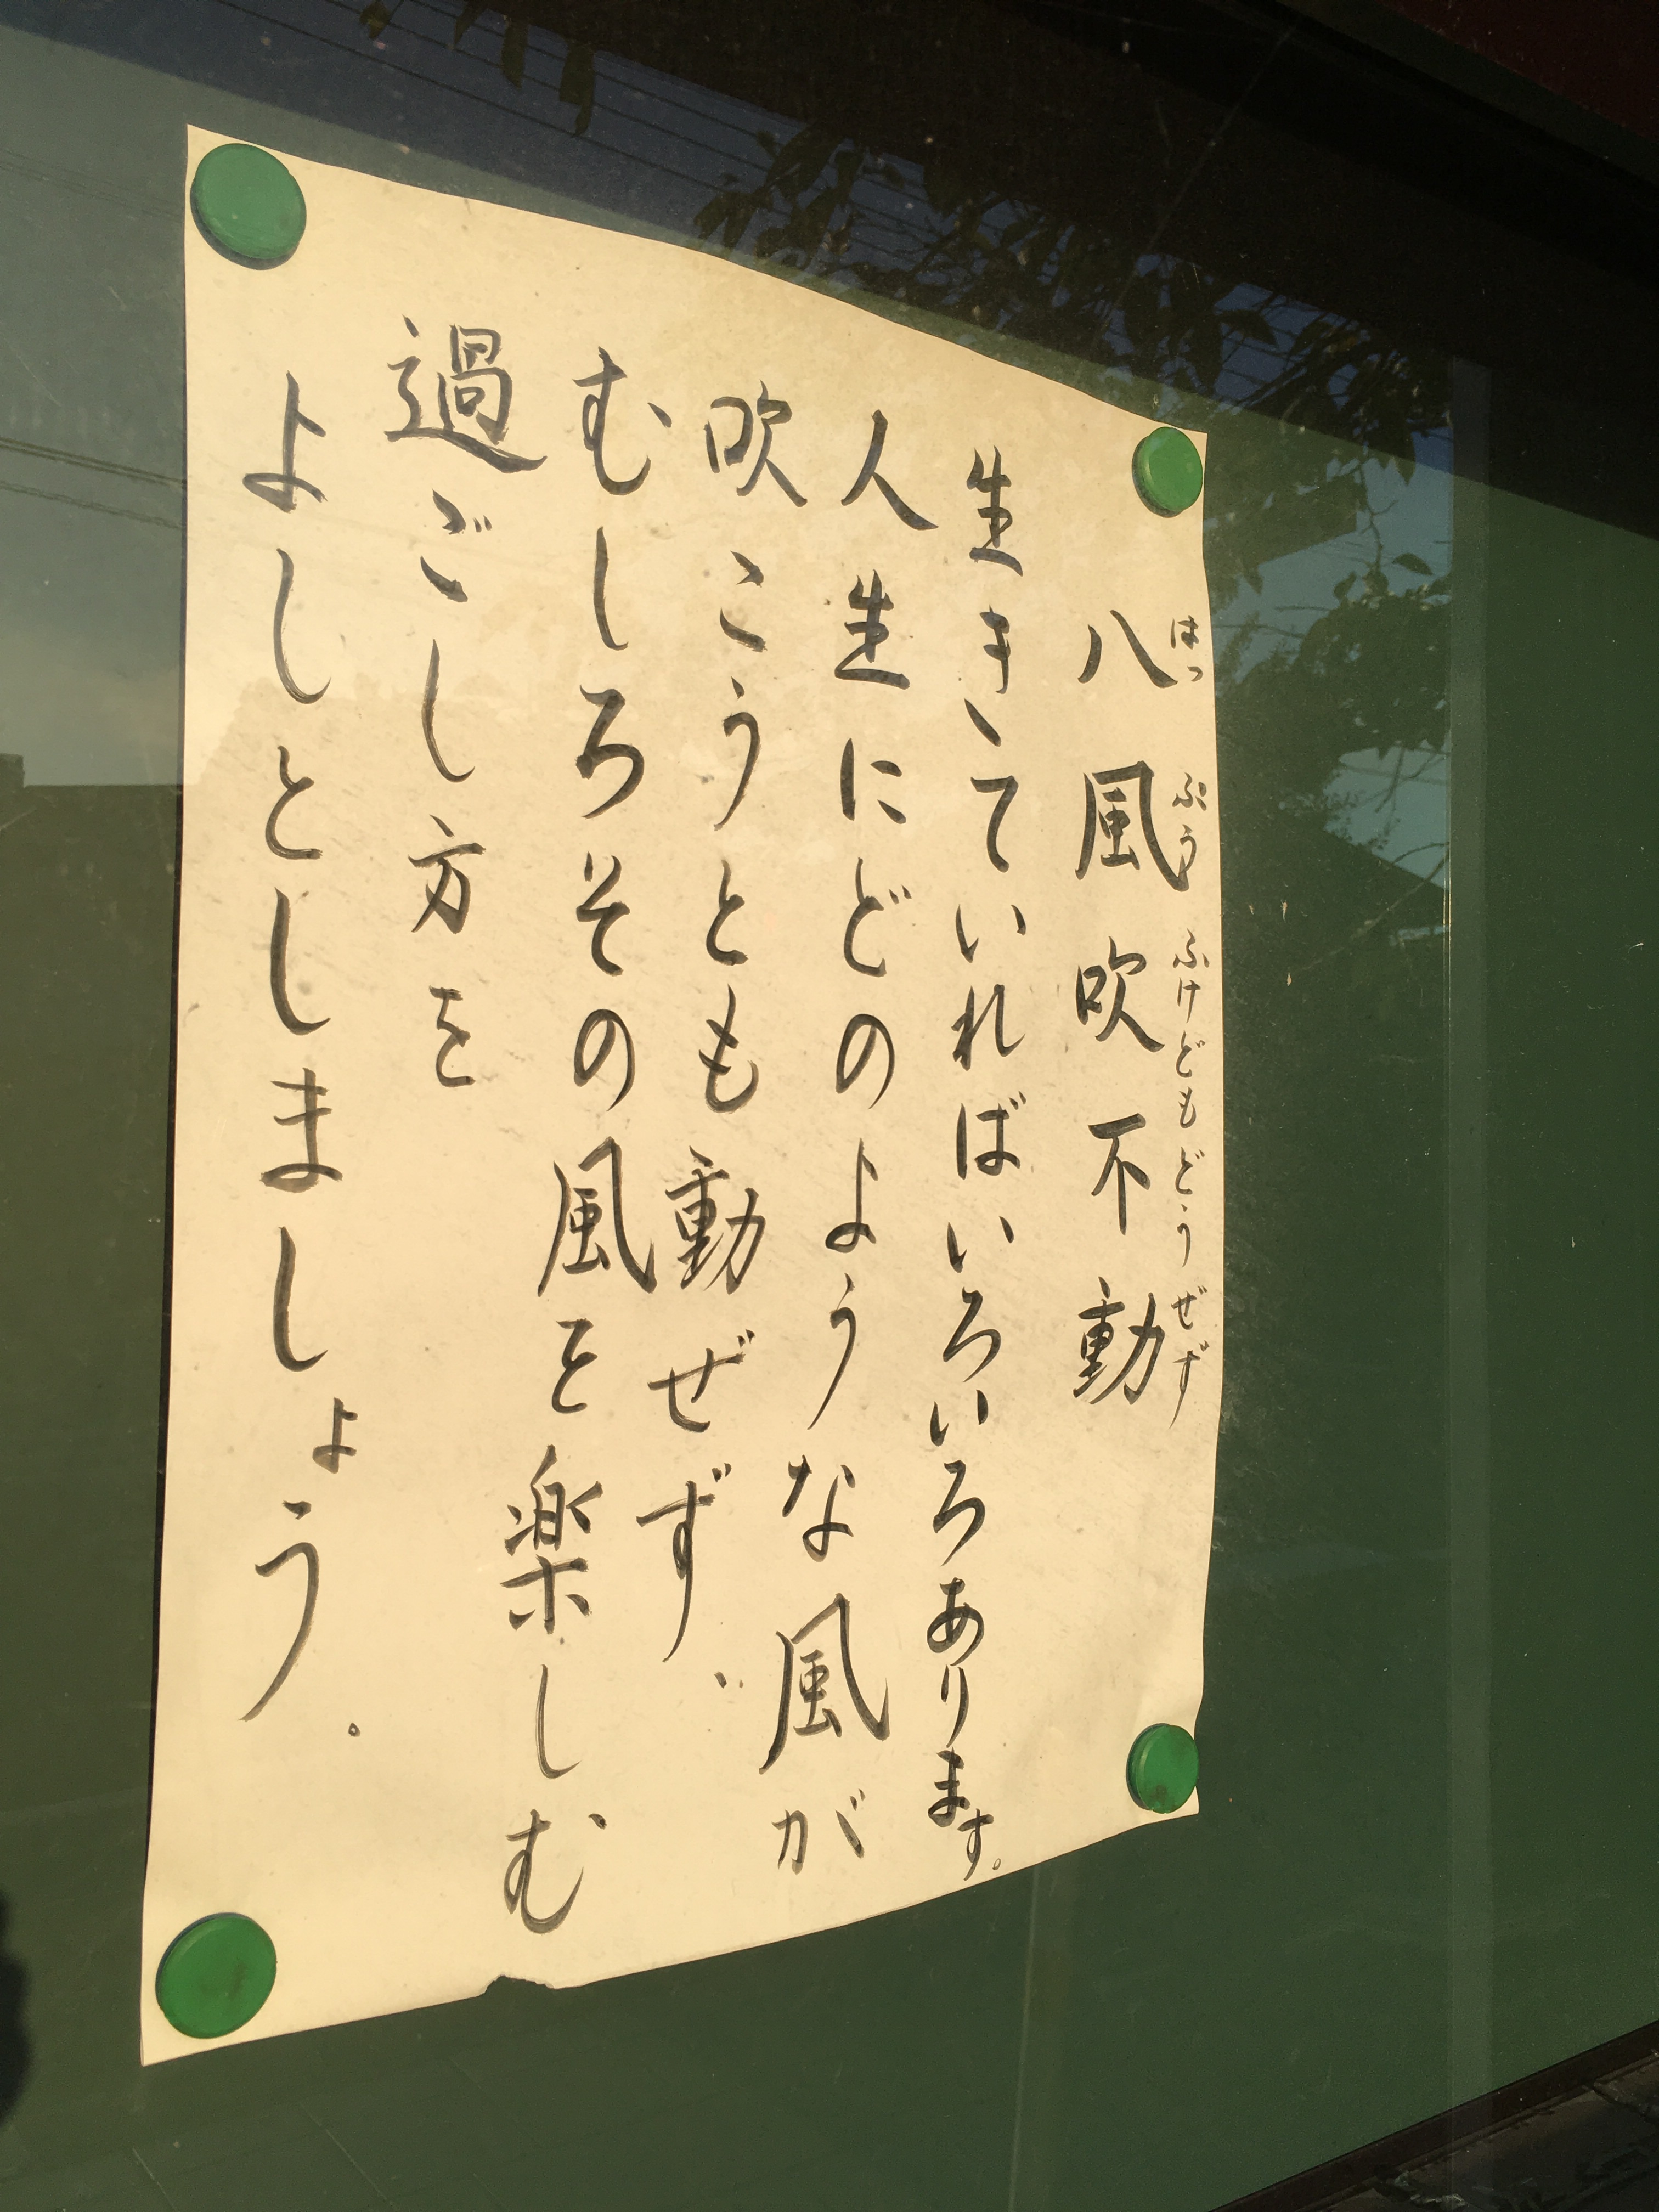 八風吹不動
はっぷうふけどもどうぜず
生きていればいろいろあります。
人生にどのような風が
吹こうとも動ぜず、
むしろその風を楽しむ
過ごし方を
よしとしましょう。